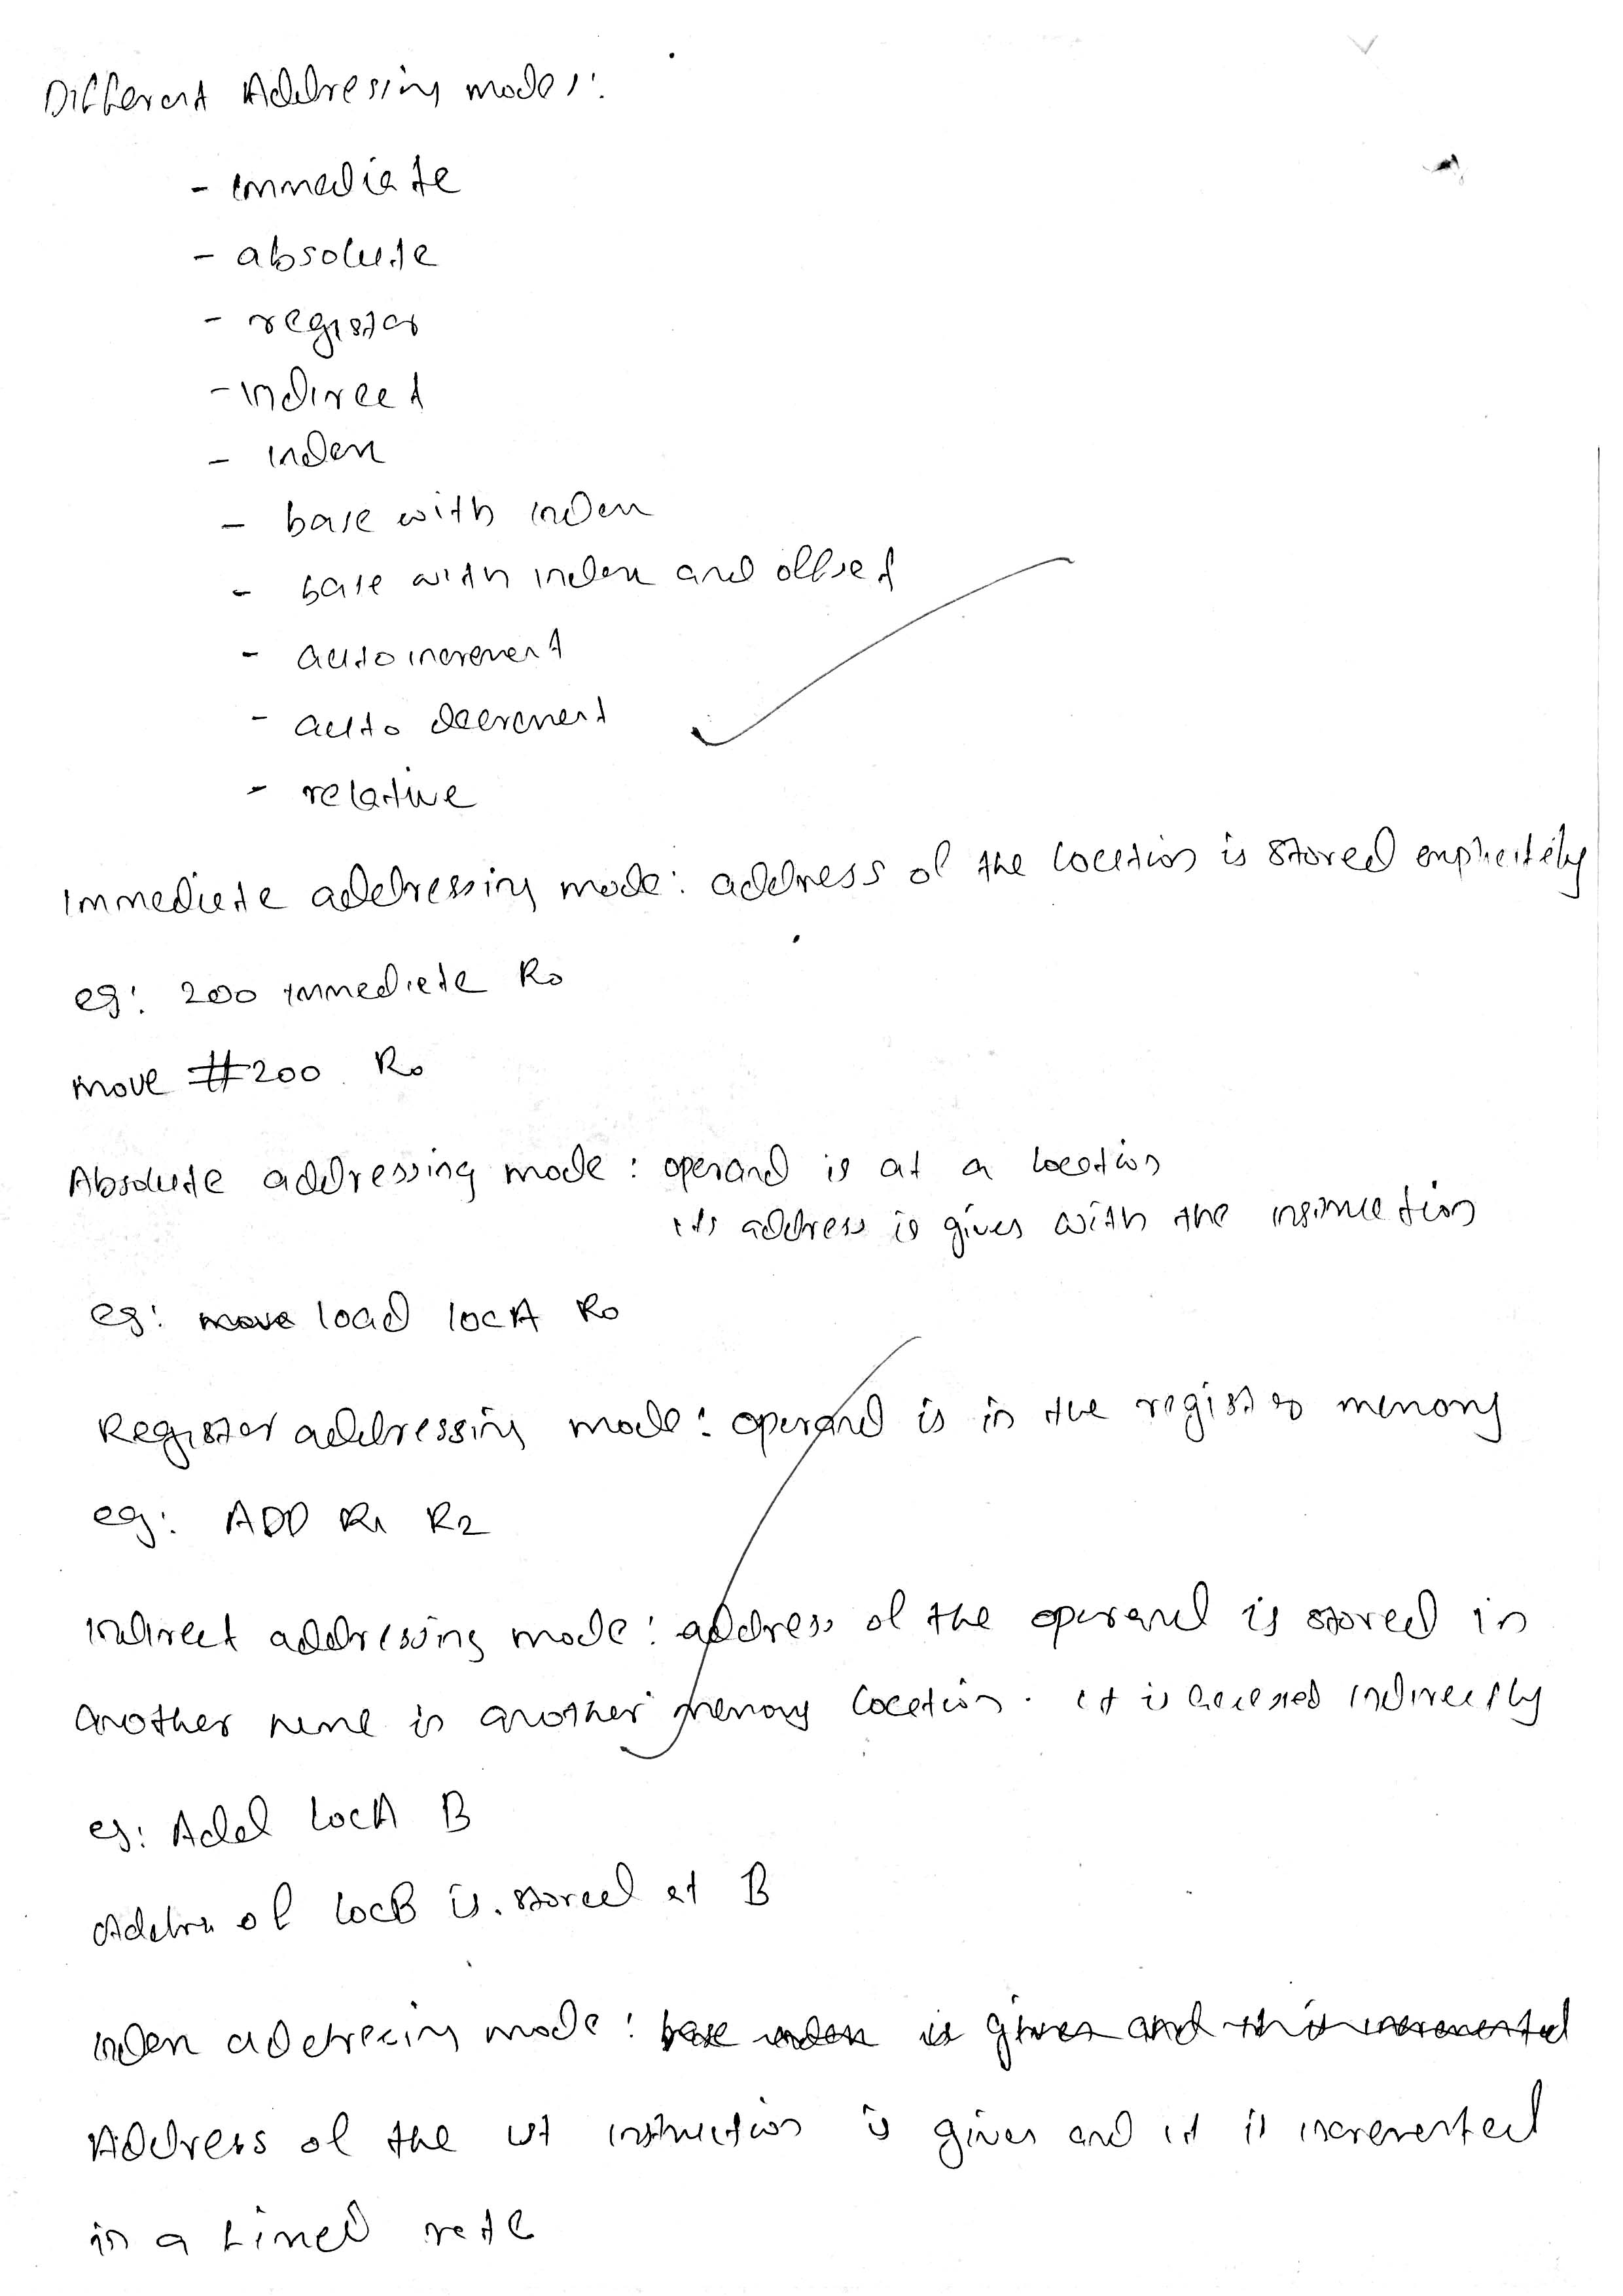 Different Addressing modes:
- immediate
- absolute
- register
- indirect
- index
- base with index
- base with index and offset
- auto increment
- auto decrement
- relative
Immediate addressing mode: address of the location is stored explicitily
eg: 200 immediate R0
Move #200 R0
Absolute addressing mode: operand is at a location
its address is given with the instruction
eg: move load locA R0
Register addressing mode: operand is in the register memory
eg: ADD R1 R2
Indirect addressing mode: address of the operand is stored in
another in another memory location. it is accessed indirectly
eg: Add locA B
Address of locB is stored at B
Index addressing mode: base index is given and incremented
Address of the 1st instruction is given and it is incremented
in a fixed rate